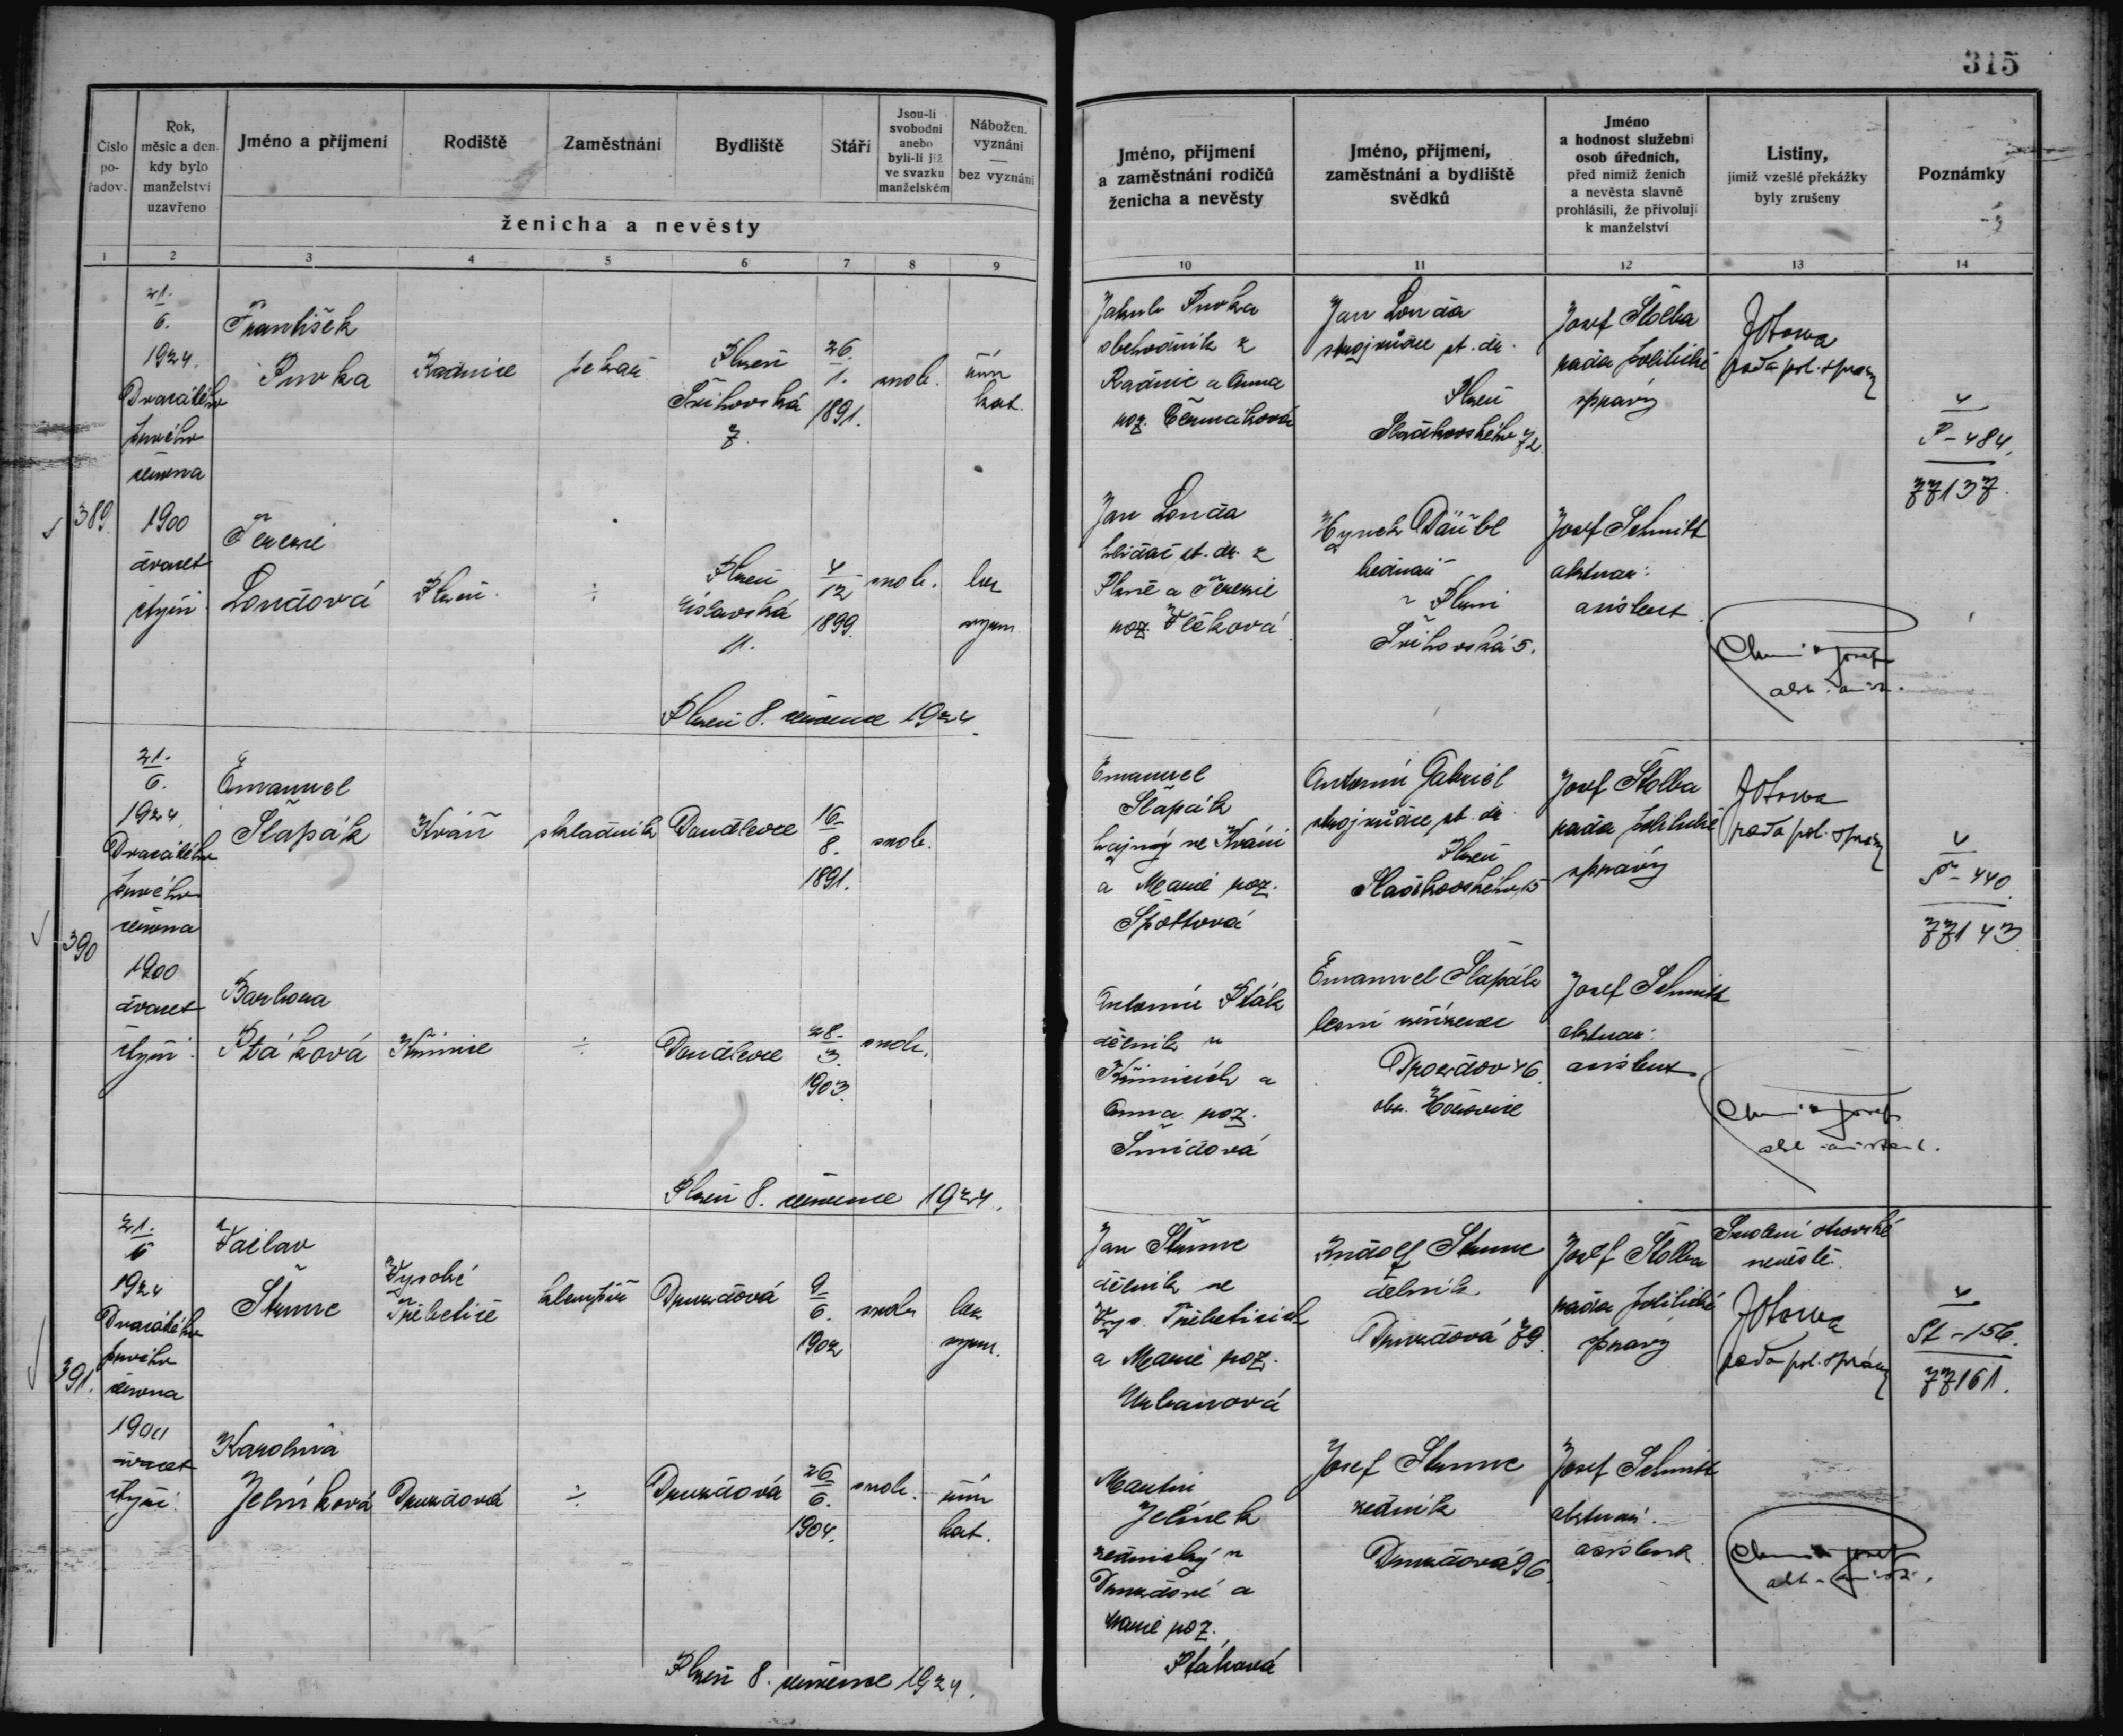 315
Číslo po- řadov.
Rok, měsíc a den kdy bylo manželství uzavřeno
Jméno a příjmení
Rodiště
Zaměstnání
Bydliště
Stáří
Jsou-li svobodni anebo byli-li již ve svazku manželském
Nábožen. vyznání — bez vyznání
ženicha a nevěsty
Jméno, příjmení a zaměstnání rodičů ženicha a nevěsty
Jméno, příjmení, zaměstnání a bydliště svědků
Jméno a hodnost služební osob úředních, před nimiž ženich a nevěsta slavně prohlásili, že přivolují k manželství
Listiny, jimiž vzešlé překážky byly zrušeny
Poznámky
1 2 3 4 5 6 7 8 9 10 11 12 13 14
389
21.
6.
1924.
Dvacátého
prvého
června
1900
dvacet
čtyři
František
Radnice
pekař
Plzeň
7.
26.
1.
1891.
svob.
řím
kat.
Radnic a Anna
roz. Čermáková
Jan Londa
strojvůdce st. dr.
Plzeň
Sladkovského 72
Josef Stolba
rada politické
správy
rada pol. správy
4
P-484.
77137.
Terezie
Londová
Plzeň
÷
Plzeň
11.
4
12
1899.
svob.
bez
vyzn.
Jan Londa
hlídač st. dr. z
Plzně a Terezie
roz. Vlčková
Hynek Däubl
bednář
v Plzni
5.
Josef Schmitt
aktuar.
asistent
Plzeň 8. července 1924.
390
21.
6.
1924
Dvacátého
prvého
června
1900
dvacet
čtyři
Emanuel
Šlapák
Kváň
skladník
Doudlevce
16.
8.
1891.
svob.
Emanuel
Šlapák
hajný ve Kváni
a Marie roz.
Antonín Gabriel
strojvůdce st. dr.
Plzeň
Sladkovského 15
Josef Stolba
rada politické
správy
rada pol. správy
4
440.
77143.
Barbora
Ptáková
Křimice
÷
Doudlevce
28.
3.
1903.
svob.
Antonín Pták
dělník v
Křimicích a
Anna roz.
Šmídová
Emanuel Šlapák
lesní zřízenec
Drozdov 46
okr. Hořovice
Josef Schmitt
aktuar.
asistent
Plzeň 8. července 1924.
391.
21.
6
1924
Dvacátého
prvého
června
1900
dvacet
čtyři
Václav
Vysoké
Třebetice
klempíř
Druzdová
9.
6.
1902
svob.
bez
vyzn.
Jan
dělník ve
Vys. Třebeticích
a Marie roz.
Urbanová
Rudolf
dělník
Druzdová 79.
Josef Stolba
rada politické
správy
Svolení otcovské
nevěstě.
rada pol. správy
4
St-156.
77161.
Karolina
Jelínková
Druzdová
÷
Druzdová
26
6.
1904.
svob.
řím
kat.
Martin
Jelínek
zednický v
Druzdové a
Marie roz.
Ptáková
Josef
zedník
Druzdová 96.
Josef Schmitt
aktuar.
asistent
Plzeň 8. července 1924.